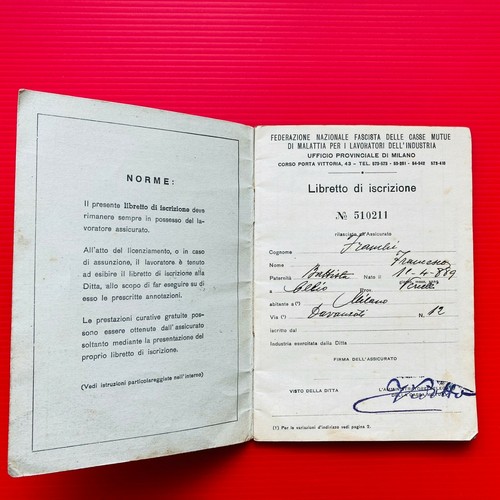 NORME:
Il presente libretto di iscrizione deve
rimanere sempre in possesso del la-
voratore assicurato.
All'atto del licenziamento, o in caso
di assunzione, il lavoratore è tenuto
ad esibire il libretto di iscrizione alla
Ditta, allo scopo di far eseguire su di
esso le prescritte annotazioni.
Le prestazioni curative gratuite pos-
sono essere ottenute dall'assicurato
soltanto mediante la presentazione del
proprio libretto di iscrizione.
(Vedi istruzioni particolareggiate nell'interno)
FEDERAZIONE NAZIONALE FASCISTA DELLE CASSE MUTUE
DI MALATTIA PER I LAVORATORI DELL'INDUSTRIA
UFFICIO PROVINCIALE DI MILANO
CORSO PORTA VITTORIA, 43 - TEL.
Libretto di iscrizione
№ 510211
rilasciato all'Assicurato
Cognome
Nome Francesco
Paternità Battista Nato il 1°-4-889
a Prov.
abitante a (*) Milano
Via (*) N. 12
iscritto dal
Industria esercitata dalla Ditta
FIRMA DELL'ASSICURATO
VISTO DELLA DITTA
(*) Per le variazioni d'indirizzo vedi pagina 3.